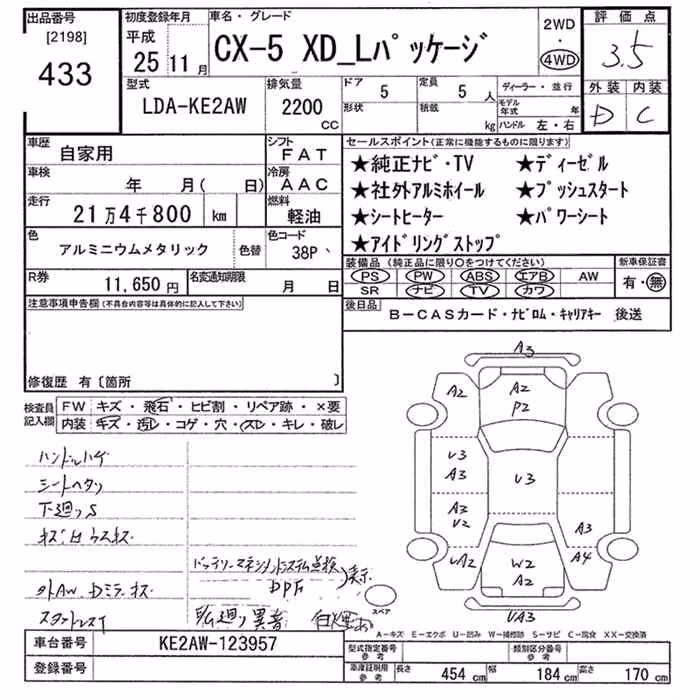 出品番号 [2198] 433
初度登録年月 平成 25 11月
車名・グレード CX-5 XD_Lパッケージ
2WD ・ 4WD
評価点 3.5
外装 内装
D C
型式 LDA-KE2AW
排気量 2200 cc
ドア 5
形状
定員 5人
積載 kg
ディーラー・並行
モデル年式 年
ハンドル 左・右
車歴 自家用
シフト FAT
車検 年 月( 日)
冷房 AAC
走行 21万4千800 km
燃料 軽油
色 アルミニウムメタリック 色替
色コード 38P
R券 11,650円
名変通知期限 月 日
セールスポイント(正常に機能するものに限ります)
★純正ナビ・TV ★ディーゼル
★社外アルミホイール ★プッシュスタート
★シートヒーター ★パワーシート
★アイドリングストップ
装備品(純正品に限り○をつけてください) 新車保証書
PS PW ABS エアB AW 有・無
SR ナビ TV カワ
後日品
B-CASカード・ナビロム・キャリアキー 後送
注意事項申告欄(不具合内容等は具体的に記入して下さい)
修復歴 有〔箇所 〕
検査員記入欄
FW キズ・飛石・ヒビ割・リペア跡・×要
内装 キズ・汚レ・コゲ・穴・スレ・キレ・破レ
ハンドルハゲ
シートヘタリ
下廻りS
バッテリーマネジメントシステム点検 表示
DPF
外AW Dミラーキズ
スタットレスT
下廻り異音 白煙あり
A3
A2 A2 P2
U3 A3 U3
A3 U2 A3
UA2 W2 A2 A4
UA3
スペア
A-キズ E-エクボ U-凹み W-補修跡 S-サビ C-腐食 XX-交換済
車台番号 KE2AW-123957
登録番号
型式指定番号 参考
類別区分番号 参考
車庫証明用 参考 長さ 454 cm 幅 184 cm 高さ 170 cm